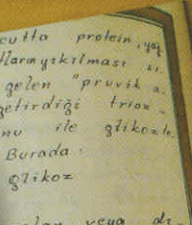 cutta protein, yağ
ların yıkılması sı
gelen "pruvik a.
getirdiği trioz
nu ile glikozla
Burada
glikoz
veya di